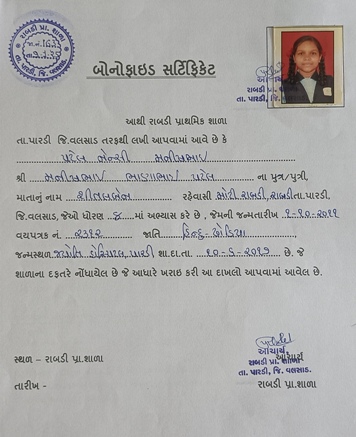 રાબડી પ્રા. શાળા
તા. પારડી, જિ. વલસાડ.
આચાર્ય
રાબડી પ્રા. શાળા
તા. પારડી, જિ.
બોનોફાઇડ સર્ટિફિકેટ
આથી રાબડી પ્રાથમિક શાળા
તા.પારડી જિ.વલસાડ તરફથી લખી આપવામાં આવે છે કે
પટેલ જેન્સી મનીષભાઈ
શ્રી મનીષભાઈ ભાણાભાઈ પટેલ ના પુત્ર/પુત્રી,
માતાનું નામ શીતલબેન રહેવાસી મોટી રાબડી, રાબડી તા.પારડી,
જિ.વલસાડ, જેઓ ધોરણ માં અભ્યાસ કરે છે , જેમની જન્મતારીખ ૧-૧૦-૨૦૧૧
વયપત્રક નં. ૨૩૧૨ જાતિ હિન્દુ-ધોડિયા
જન્મસ્થળ જ્યોતિ હોસ્પિટલ, પારડી શા.દા.તા. ૧૦-૬-૨૦૧૭ છે. જે
શાળાના દફતરે નોંધાયેલ છે જે આધારે ખરાઇ કરી આ દાખલો આપવામાં આવેલ છે.
સ્થળ – રાબડી પ્રા.શાળા
તારીખ -
આચાર્ય
રાબડી પ્રા. શાળા
તા. પારડી, જિ. વલસાડ.
આચાર્ય
રાબડી પ્રા.શાળા